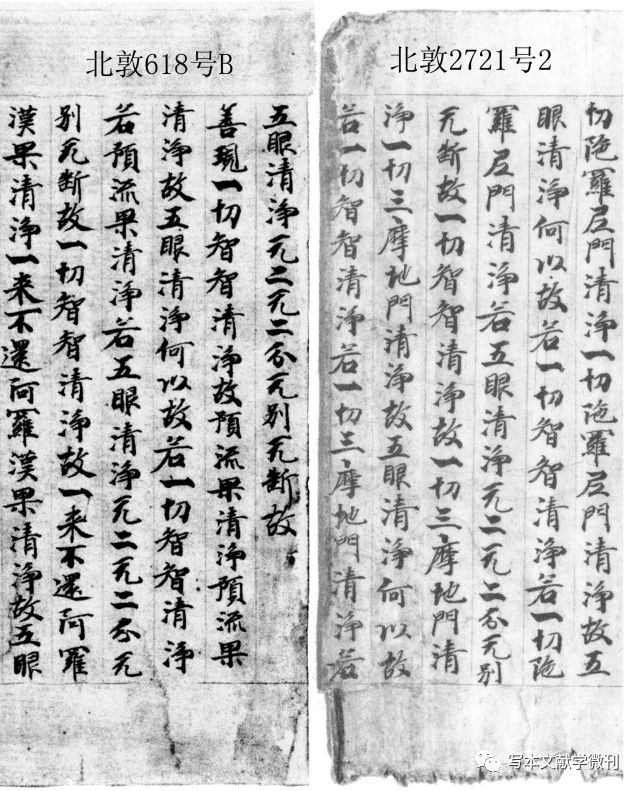 北敦2721号2
切陁羅尼門清淨一切陁羅尼門清淨故五
眼清淨何以故若一切智智清淨若一切陁
羅尼門清淨若五眼清淨无二无二分无別
无斷故一切智智清淨故一切三摩地門清
淨一切三摩地門清淨故五眼清淨何以故
若一切智智清淨若一切三摩地門清淨若
北敦618号B
五眼清淨无二无二分无別无斷故
善現一切智智清淨故預流果清淨預流果
清淨故五眼清淨何以故若一切智智清淨
若預流果清淨若五眼清淨无二无二分无
別无斷故一切智智清淨故一来不還阿羅
漢果清淨一来不還阿羅漢果清淨故五眼
写本文献学微刊